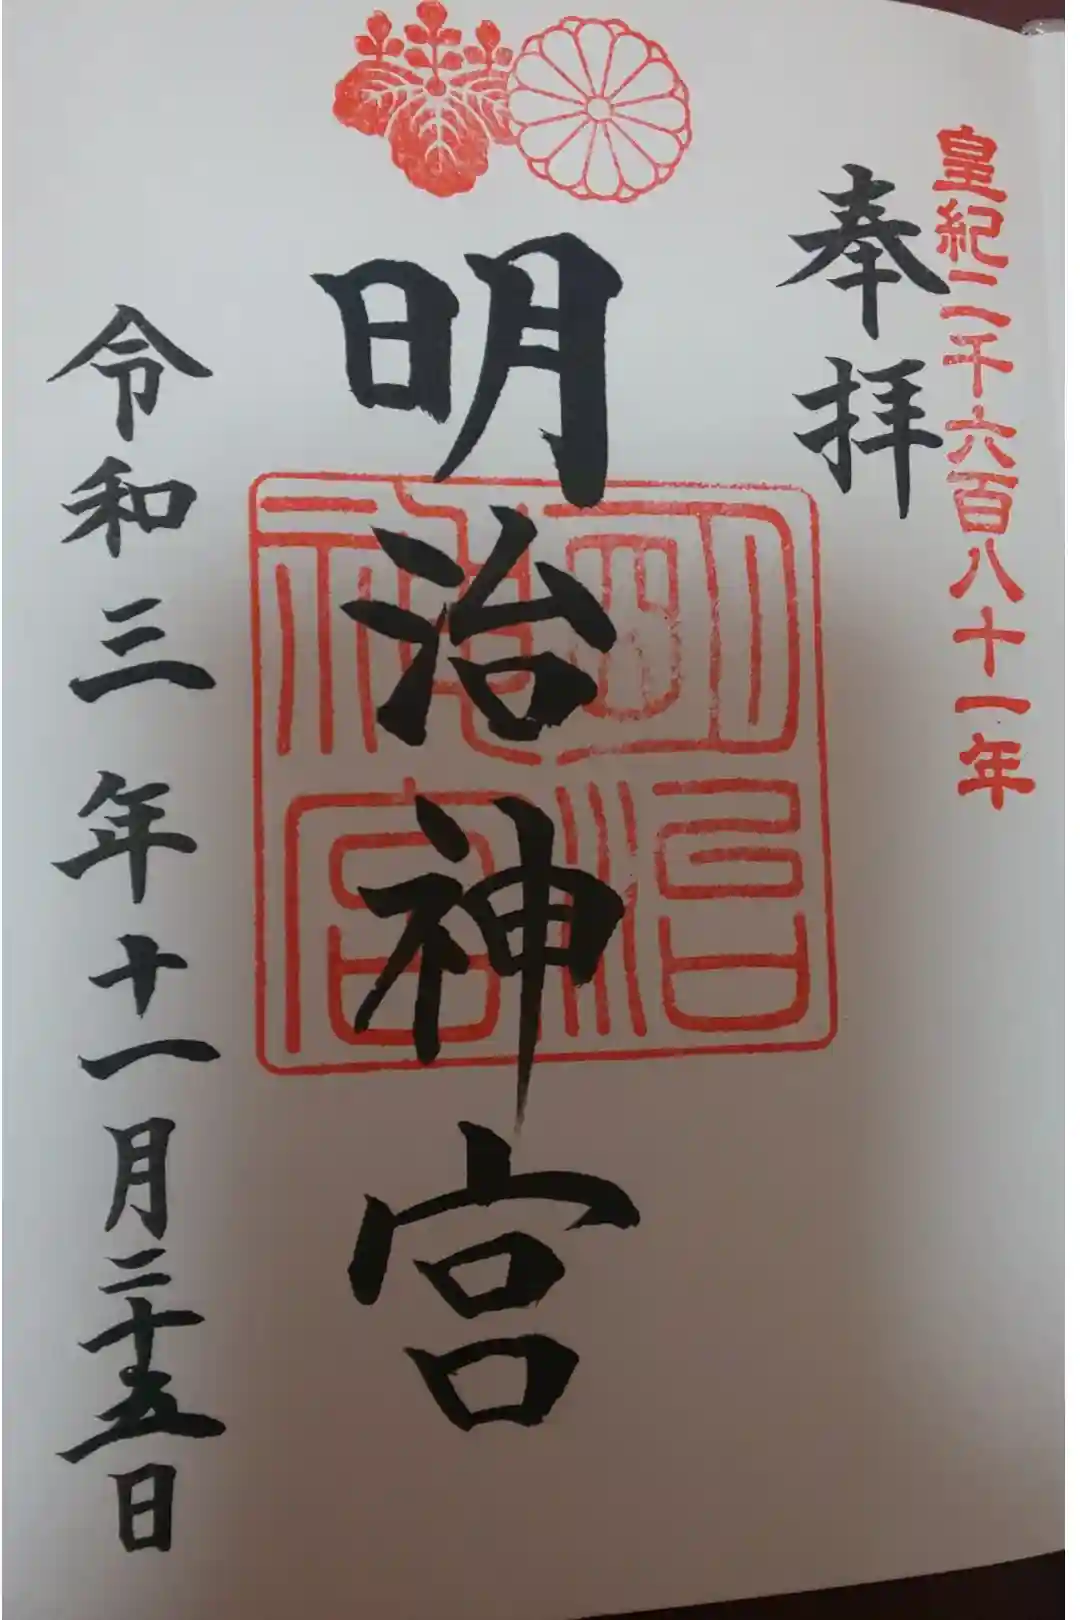 皇紀二千六百八十一年
奉拝
明治神宮
明治
神宮
令和三年十一月二十五日